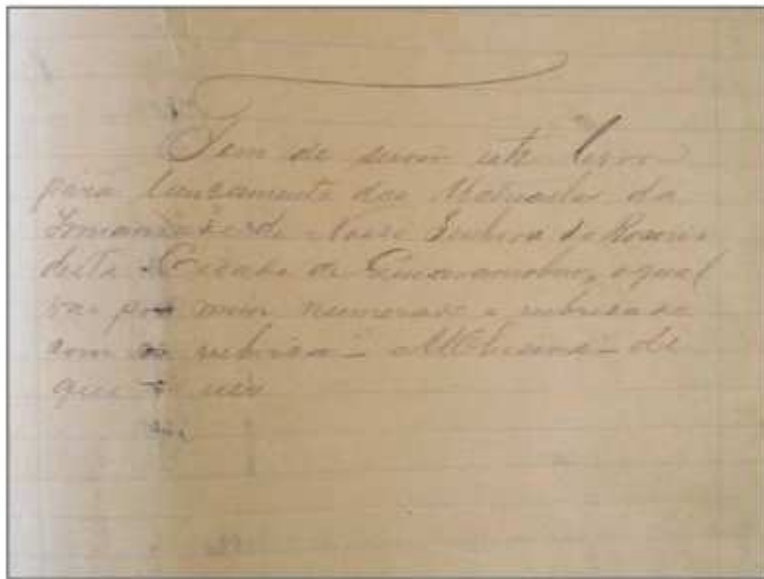 Tem de servir este livro
para lançamento das Mesadas da
Irmandade de Nossa Senhora do Rosario
desta Cidade de Quixeramobim, o qual
vai por mim numerado e rubricado
com a rubrica - - de
que uso